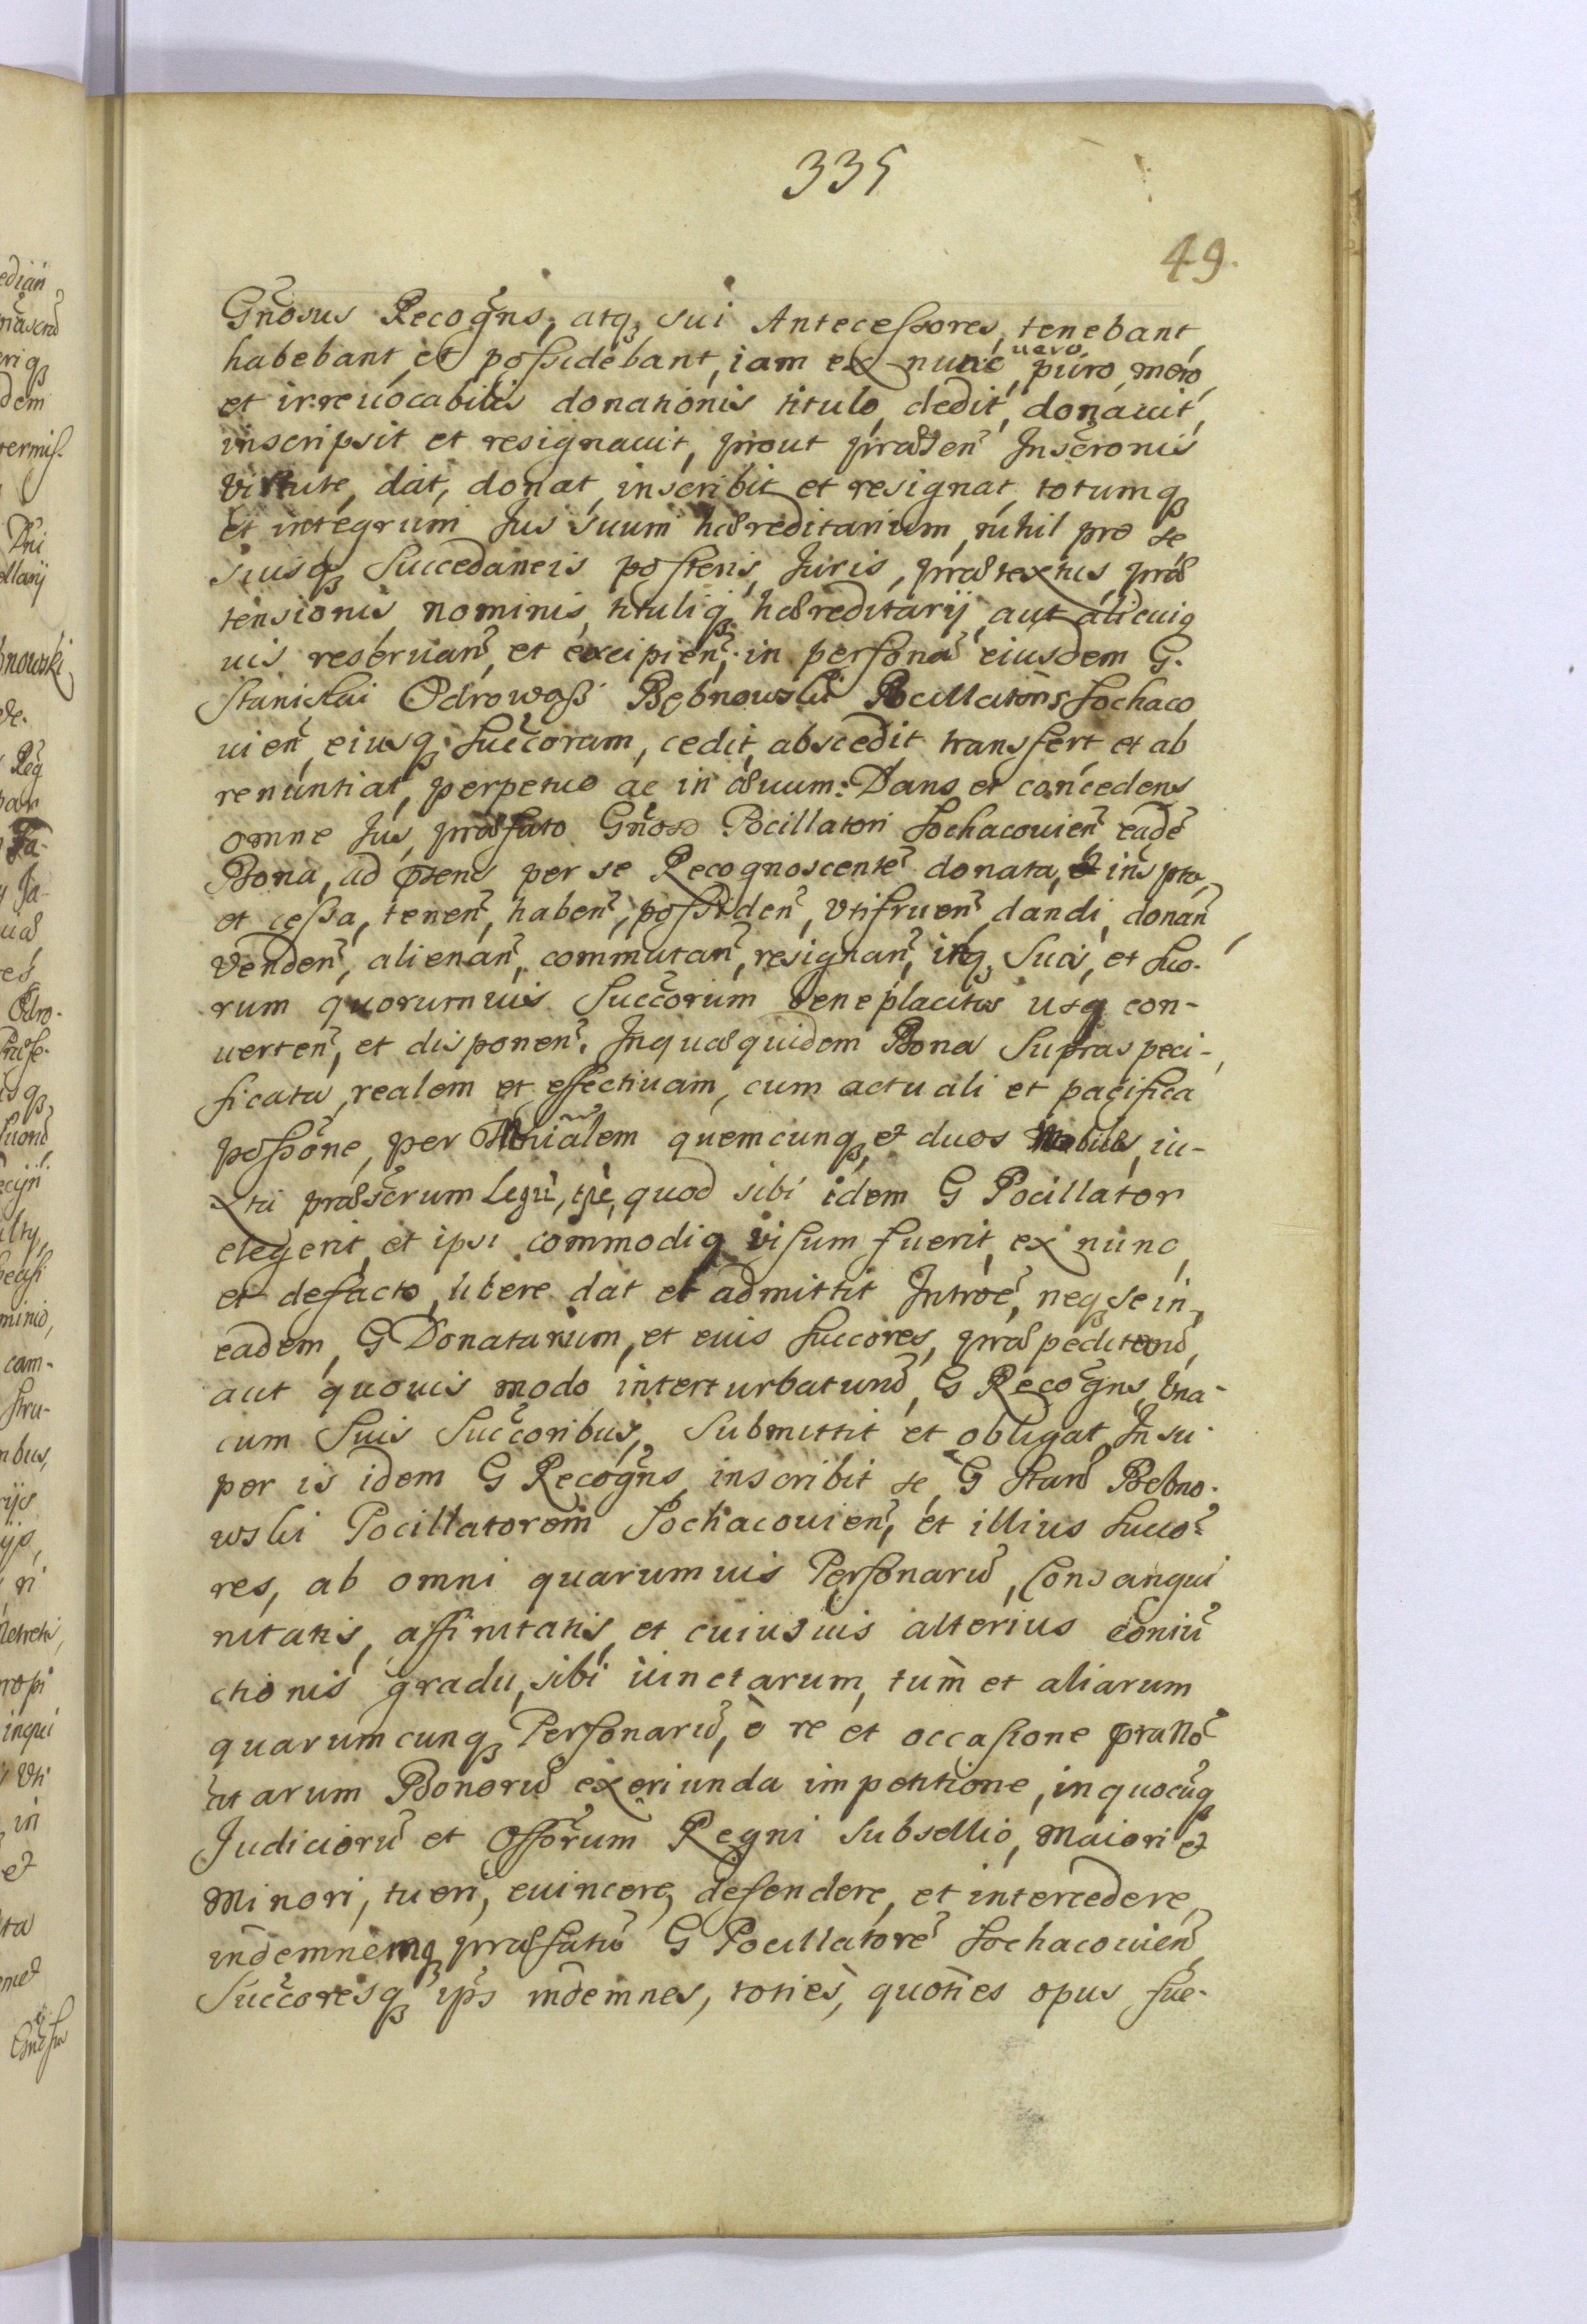 335
49.
Gñosus Recogñs, atq₃ sui Antecessores, tenebant,
habebant, et possidebant, iam ex nunc uero, puro, mero,
et irreuocabilis donationis titulo, dedit, donauit,
inscripsit et resignauit, prout præsen̄ Inscronis
virtute, dat, donat, inscribit et resignat, totumq₃
et integrum Jus suum hæreditarium, nihil pro se
suisq₃ Succedaneis posteris, Juris, prætextus, præ
tensionis, nominis, tituliq₃ hæreditarij, aut alicuig
uis reseruan̄, et excipien̄, in persona eiusdem G.
Stanislai Odrowąß Bębnowski Pocillatoris Sochaco
uien̄, eiusq₃ Succorum, cedit, abscedit transfert, et ab
renuntiat, perpetuo ac in æuum: Dans et concedens
omne Jus, præfato Gñoso Pocillatori Sochacouien̄ eadē
Bona, ad præsens per se Recognoscentē donata, inspta,
et cessa, tenen̄, haben̄, possiden̄, vtifruen̄, dandi, donan̄
venden̄, alienan̄, commutan̄, resignan̄, inq₃ Sua, et Suo-
rum quorumuis Succorum beneplacita usq con-
uerten̄, et disponen̄. Inquæ quidem Bona Supraspeci-
ficata, realem et effectiuam, cum actuali et pacifica
possone, per Mnialem quemcunq₃ et duos Nobiles, iu-
xta præscrum Legū, quod sibi idem G Pocillator
elegerit, et ipsi commodiq visum fuerit, ex nunc,
et defacto, libere dat et admittit Introē, neq₃ se in
eadem, G Donatarium, et euis Succores, præpediturū,
aut quouis modo interturbaturū, G Recogñs, vna-
cum Suis Succoribus, Submittit et obligat, Insu-
per is idem G Recogñs, inscribit se, G Stanū Bębno-
wski Pocillatorem Sochacouien̄, et illius Succo-
res, ab omni quarumuis Personarū, Consangui
nitatis, affinitatis, et cuiusuis alterius coniū
ctionis gradu, sibi iunctarum, tum et aliarum
quarumcunq₃ Personarū, è re et occasione præno
tatarum Bonorū exoriunda impetitione, inquocūq₃
Judiciorū et Offorum Regni subsellio, maiori et
Minori, tueri, euincere, defendere, et intercedere,
indemnemq₃ præfatū G Pocillatorē Sochacouien̄,
Succoresq₃ ips̄ indemnes, toties, quoties opus fue-